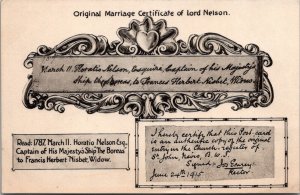 Original Marriage Certificate of Lord Nelson.
March 11. Horatio Nelson, Esquire, Captain of his Majesty's
Ship the Boreas, to Frances Herbert Nisbet, Widow.
Read: 1787, March 11. Horatio Nelson Esq.
Captain of His Majesty's Ship The Boreas
to Francis Herbert Nisbet, Widow.
I hereby certify that this Post-card
is an authentic copy of the original
entry in the Church-register of
St. John, Nevis, B.W.I.
Signed:
Rector
June 24th 1915